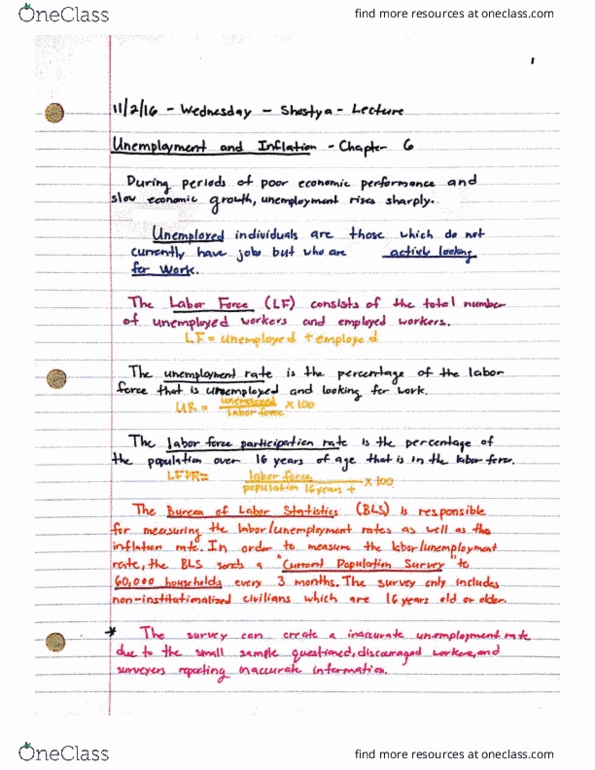 OneClass
find more resources at oneclass.com
1
11/2/16 - Wednesday - Shastya - Lecture
Unemployment and Inflation - Chapter 6
During periods of poor economic performance and
slow economic growth, unemployment rises sharply.
Unemployed individuals are those which do not
currently have jobs but who are actively looking
for work.
The Labor Force (LF) consists of the total number
of unemployed workers and employed workers.
LF = unemployed + employed
The unemployment rate is the percentage of the labor
force that is unemployed and looking for work.
UR = unemployed / labor force × 100
The labor force participation rate is the percentage of
the population over 16 years of age that is in the labor force.
LFPR = labor force / population 16 years + × 100
The Bureau of Labor Statistics (BLS) is responsible
for measuring the labor/unemployment rates as well as the
inflation rate. In order to measure the labor/unemployment
rate, the BLS sends a "Current Population Survey" to
60,000 households every 3 months. The survey only includes
non-institutionalized civilians which are 16 years old or older.
* The survey can create a inaccurate unemployment rate
due to the small sample questioned, discouraged workers, and
surveyers reporting inaccurate information.
OneClass
find more resources at oneclass.com